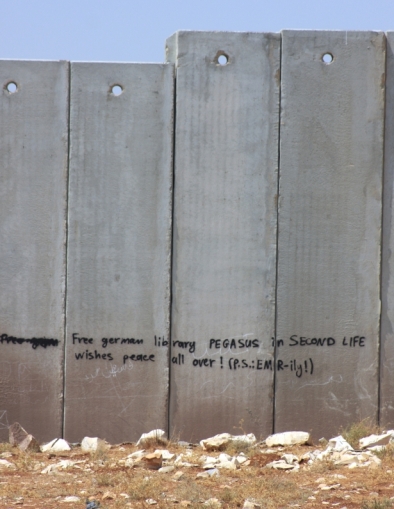 Free german library PEGASUS in SECOND LIFE
wishes peace all over! (P.S.: EMR-ily!)